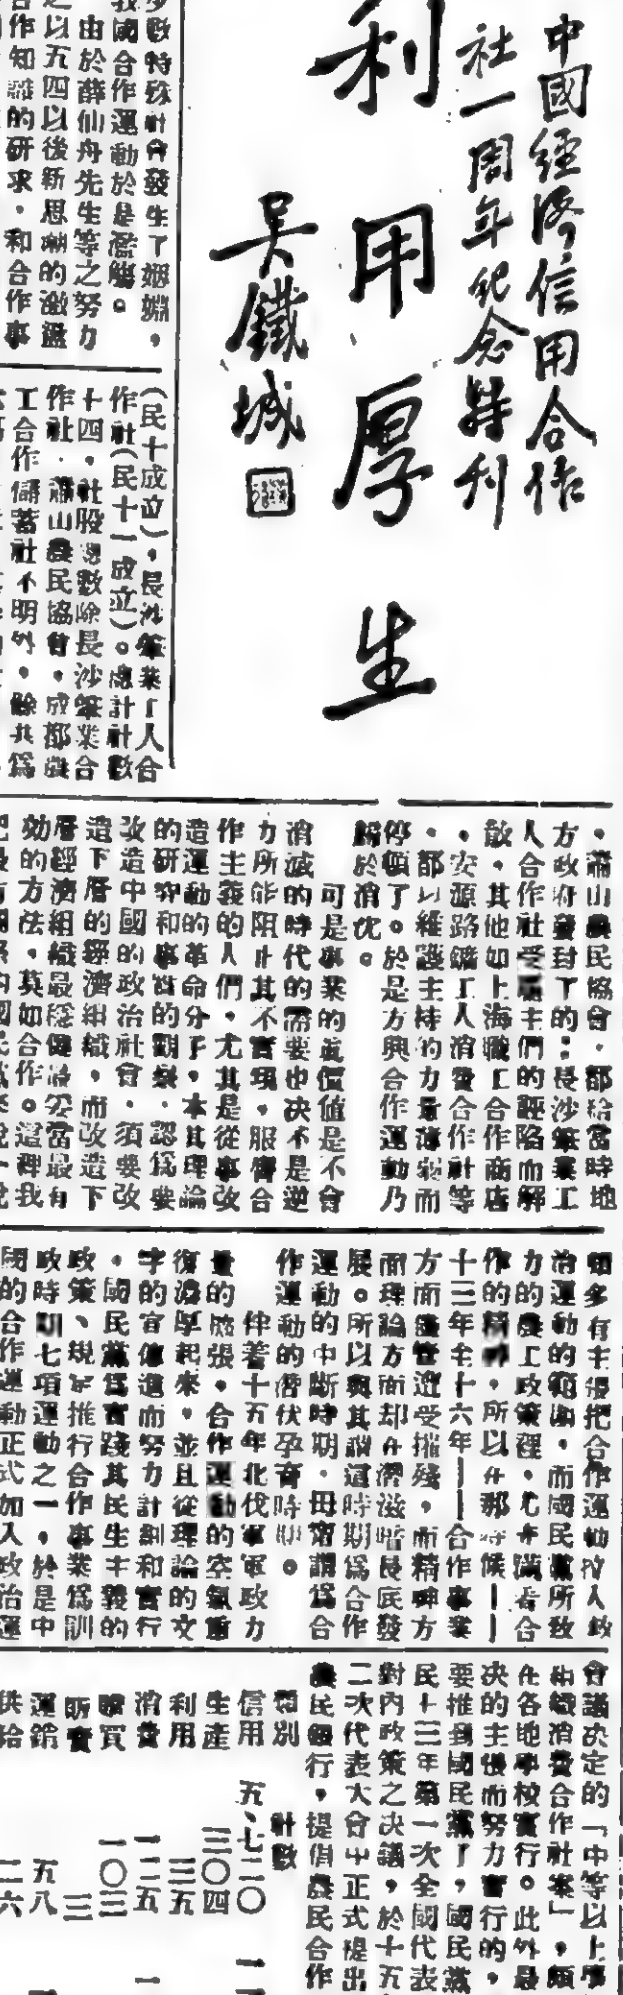 中國經濟信用合作
社一周年紀念特刊
利用厚生
吳鐵城
多數特殊社會發生了姻婣，
我國合作運動於是濫觴。
由於薛仙舟先生等之努力
之以五四以後新思潮的激盪
合作知識的研求，和合作事
（民十成立），長沙筆業工人合
作社（民十一成立）。總計社數
十四，社股總數除長沙筆業合
作社，蕭山農民協會，成都農
工合作儲蓄社不明外，餘共爲
，蕭山農民協會，都給當時地
方政府發封了的；長沙筆業工
人合作社受雇主們的誣陷而解
散，其他如上海職工合作商店
，安源路鑛工人消費合作社等
，都以維護主持的力量薄弱而
停頓了。於是方興合作運動乃
歸於消沈。
可是事業的眞價值是不會
消滅的時代的需要也決不是逆
力所能阻止其不實現，服膺合
作主義的人們，尤其是從事改
造運動的革命分子，本其理論
的研究和事實的觀察，認爲要
改造中國的政治社會，須要改
造下層的經濟組織，而改造下
層經濟組織最穩健最妥當最有
効的方法，莫如合作。這裡我
如多有主張把合作運動拉入政
治運動的範圍，而國民黨所致
力的農工政策裡，尤充滿着合
作的精神，所以在那時候——
十三年至十六年——合作事業
方面雖曾遭受摧殘，而精神方
而理論方面却在潛滋暗長底發
展。所以與其謂這時期爲合作
運動的中斷時期，毋甯謂爲合
作運動的潛伏孕育時期。
伴着十五年北伐軍軍政力
量的擴張，合作運動的空氣重
復濃厚起來，並且從理論的文
字的宣傳進而努力計劃和實行
，國民黨爲實踐其民生主義的
政策、規定推行合作事業爲訓
政時期七項運動之一，於是中
國的合作運動正式加入政治運
會議決定的「中等以上學
組織消費合作社案」，頗
在各地學校實行。此外最
決的主張而努力實行的，
要推到國民黨了，國民黨
民十三年第一次全國代表
對內政策之決議，於十五
二次代表大會中正式提出
農民銀行，提倡農民合作
類別 社數
信用 五、七二〇
生產 三〇四
利用 三五
消費 一二五
購買 一〇三
販賣 三
運銷 五八
供給 二六